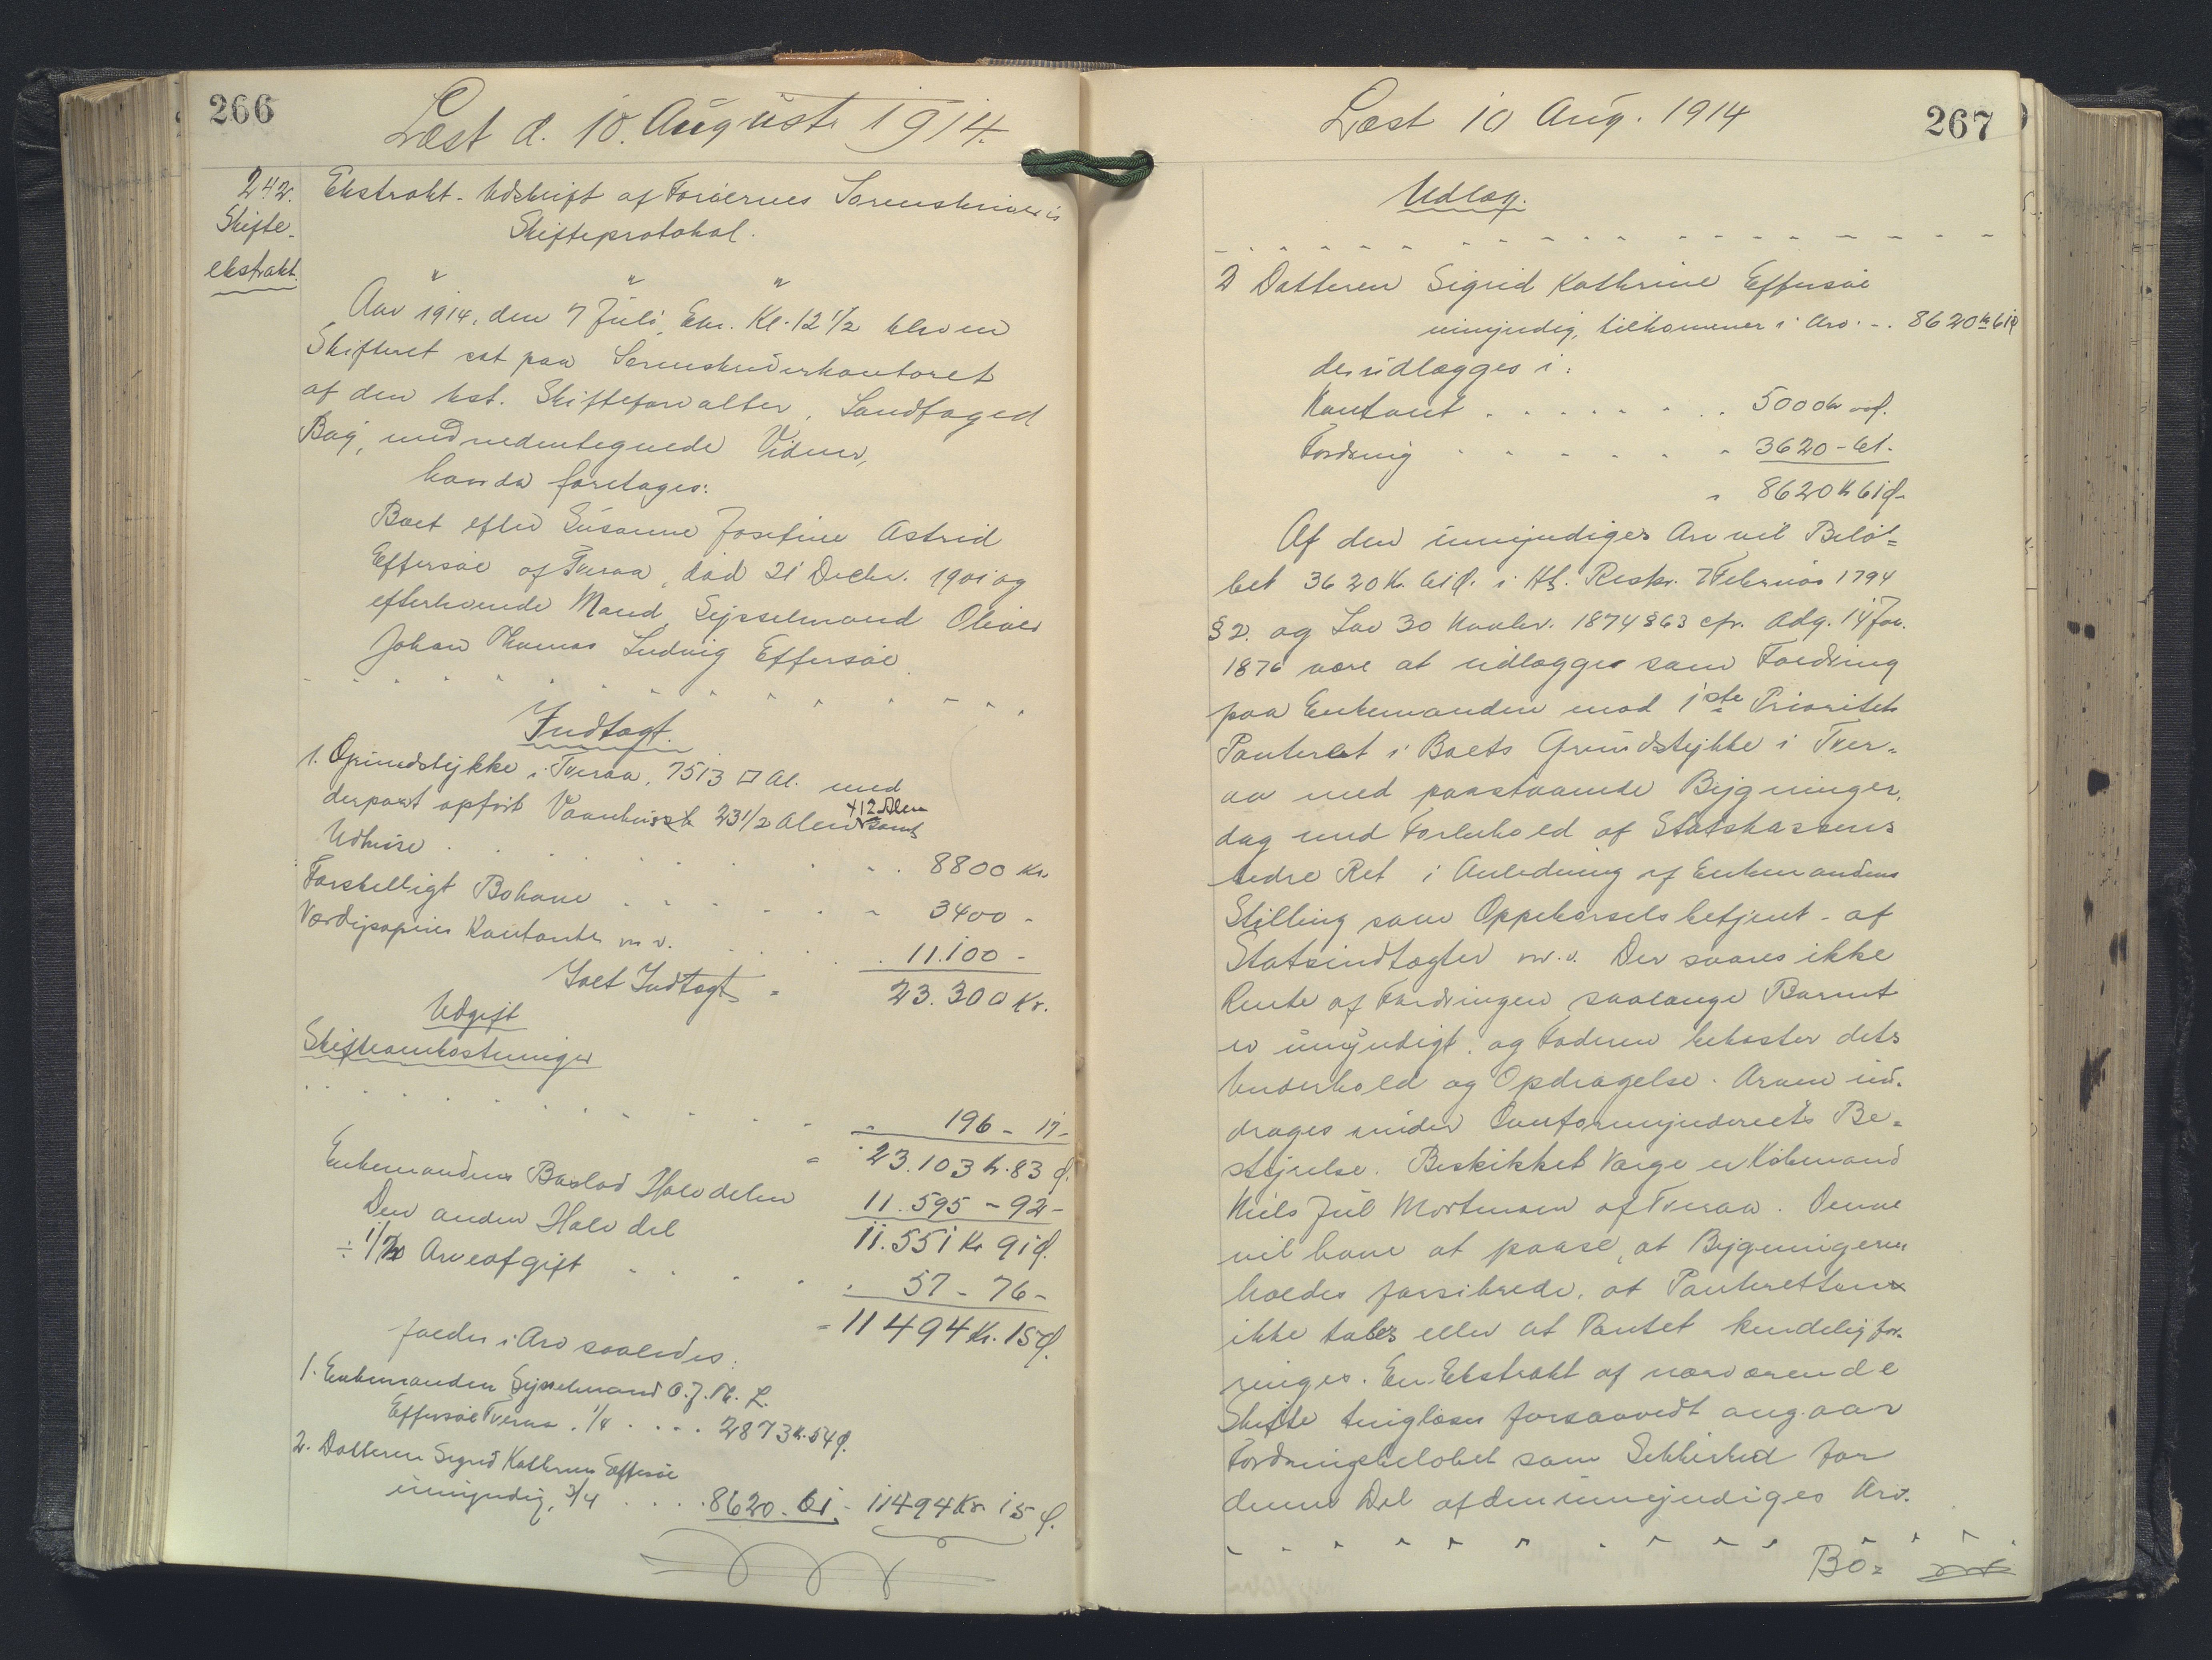 266
Læst d. 10. August 1914.
242.
Skifte-
ekstrakt.
Ekstrakt-Udskrift af Færøernes Sorenskriveris
Skifteprotokol.
" " "
Aar 1914, den 7 Juli, Em. Kl. 12 1/2 blev en
Skifteret sat paa Sorenskriverkontoret
af den kst. Skifteforvalter, Landfoged
Bag, med nedentegnede Vidner,
hvor da foretages:
Boet efter Susanne Josefine Astrid
Effersøe af Tveraa, død 21 Decbr. 1901 og
efterlevende Mand Sysselmand Oliver
Johan Thomas Ludvig Effersøe.
Indtægt.
1. Grundstykke i Tveraa, 7513 □ Al. med
derpaa opført Vaanhus 23 1/2 Alen x 12 Alen samt
Udhuse . . . 8800 Kr.
Forskelligt Bohave . . . 3400 -
Værdipapirer Kontanter m.v. . . . 11.100 -
Ialt Indtægt = 23.300 Kr.
Udgift
Skifteomkostninger
196 - 17 -
= 23.103 Kr. 83 Ø.
Enkemandens Boslod Halvdelen 11.595 - 92 -
Den anden Halvdel 11.551 Kr 91 Ø.
÷ 1/2 % Arveafgift . . . 57 - 76 -
= 11494 Kr. 15 Ø.
falder i Arv saaledes:
1. Enkemanden Sysselmand O. J. Th. L.
Effersøe Tveraa. 1/4 . . . . 2873 Kr. 54 Ø.
2. Datteren Sigrid Kathrine Effersøe
umyndig, 3/4 . . . . 8620. 61 - 11494 Kr. 15 Ø.
267
Læst 10 Aug. 1914
Udlæg.
2 Datteren Sigrid Kathrine Effersøe
umyndig, tilkommer i Arv . - . 8620 Kr 61 Ø
der udlægges i:
Kontant . . . . . . . . 5000 Kr
Fordring . . . . . . 3620 - 61.
" 8620 Kr 61 Ø.
Af den umyndiges Arv vil Belø=
bet 3620 Kr. 61 Ø. i Hh. Reskr. 7 Februar 1794
§ 2. og Lov 30 Novbr. 1874 § 63 cfr. Adg. 14 Jan.
1876 være at udlægge som Fordring
paa Enkemanden mod 1ste Prioritets
Panteret i Boets Grundstykke i Tver=
aa med paastaaende Bygninger,
dog med Forbehold af Statskassens
bedre Ret i Anledning af Enkemandens
Stilling som Oppebørselsbetjent - af
Statsindtægter m.v. Der svares ikke
Rente af Fordringen saalænge Barnet
er umyndigt, og Faderen bekoster dets
Underhold og Opdragelse. Arven ind-
drages under Overformynderiets Be=
styrelse. Beskikket Værge er Købmand
Niels Juul Mortensen af Tveraa. Denne
vil have at paase, at Bygningerne
holdes forsikrede, at Panteretten
ikke tabes eller at Pantet kendelig for-
ringes. En Ekstrakt af nærværende
Skifte tinglæses forsaavidt angaar
Fordringsbeløbet som Sikkerhed for
denne Del af den umyndiges Arv.
Bo=